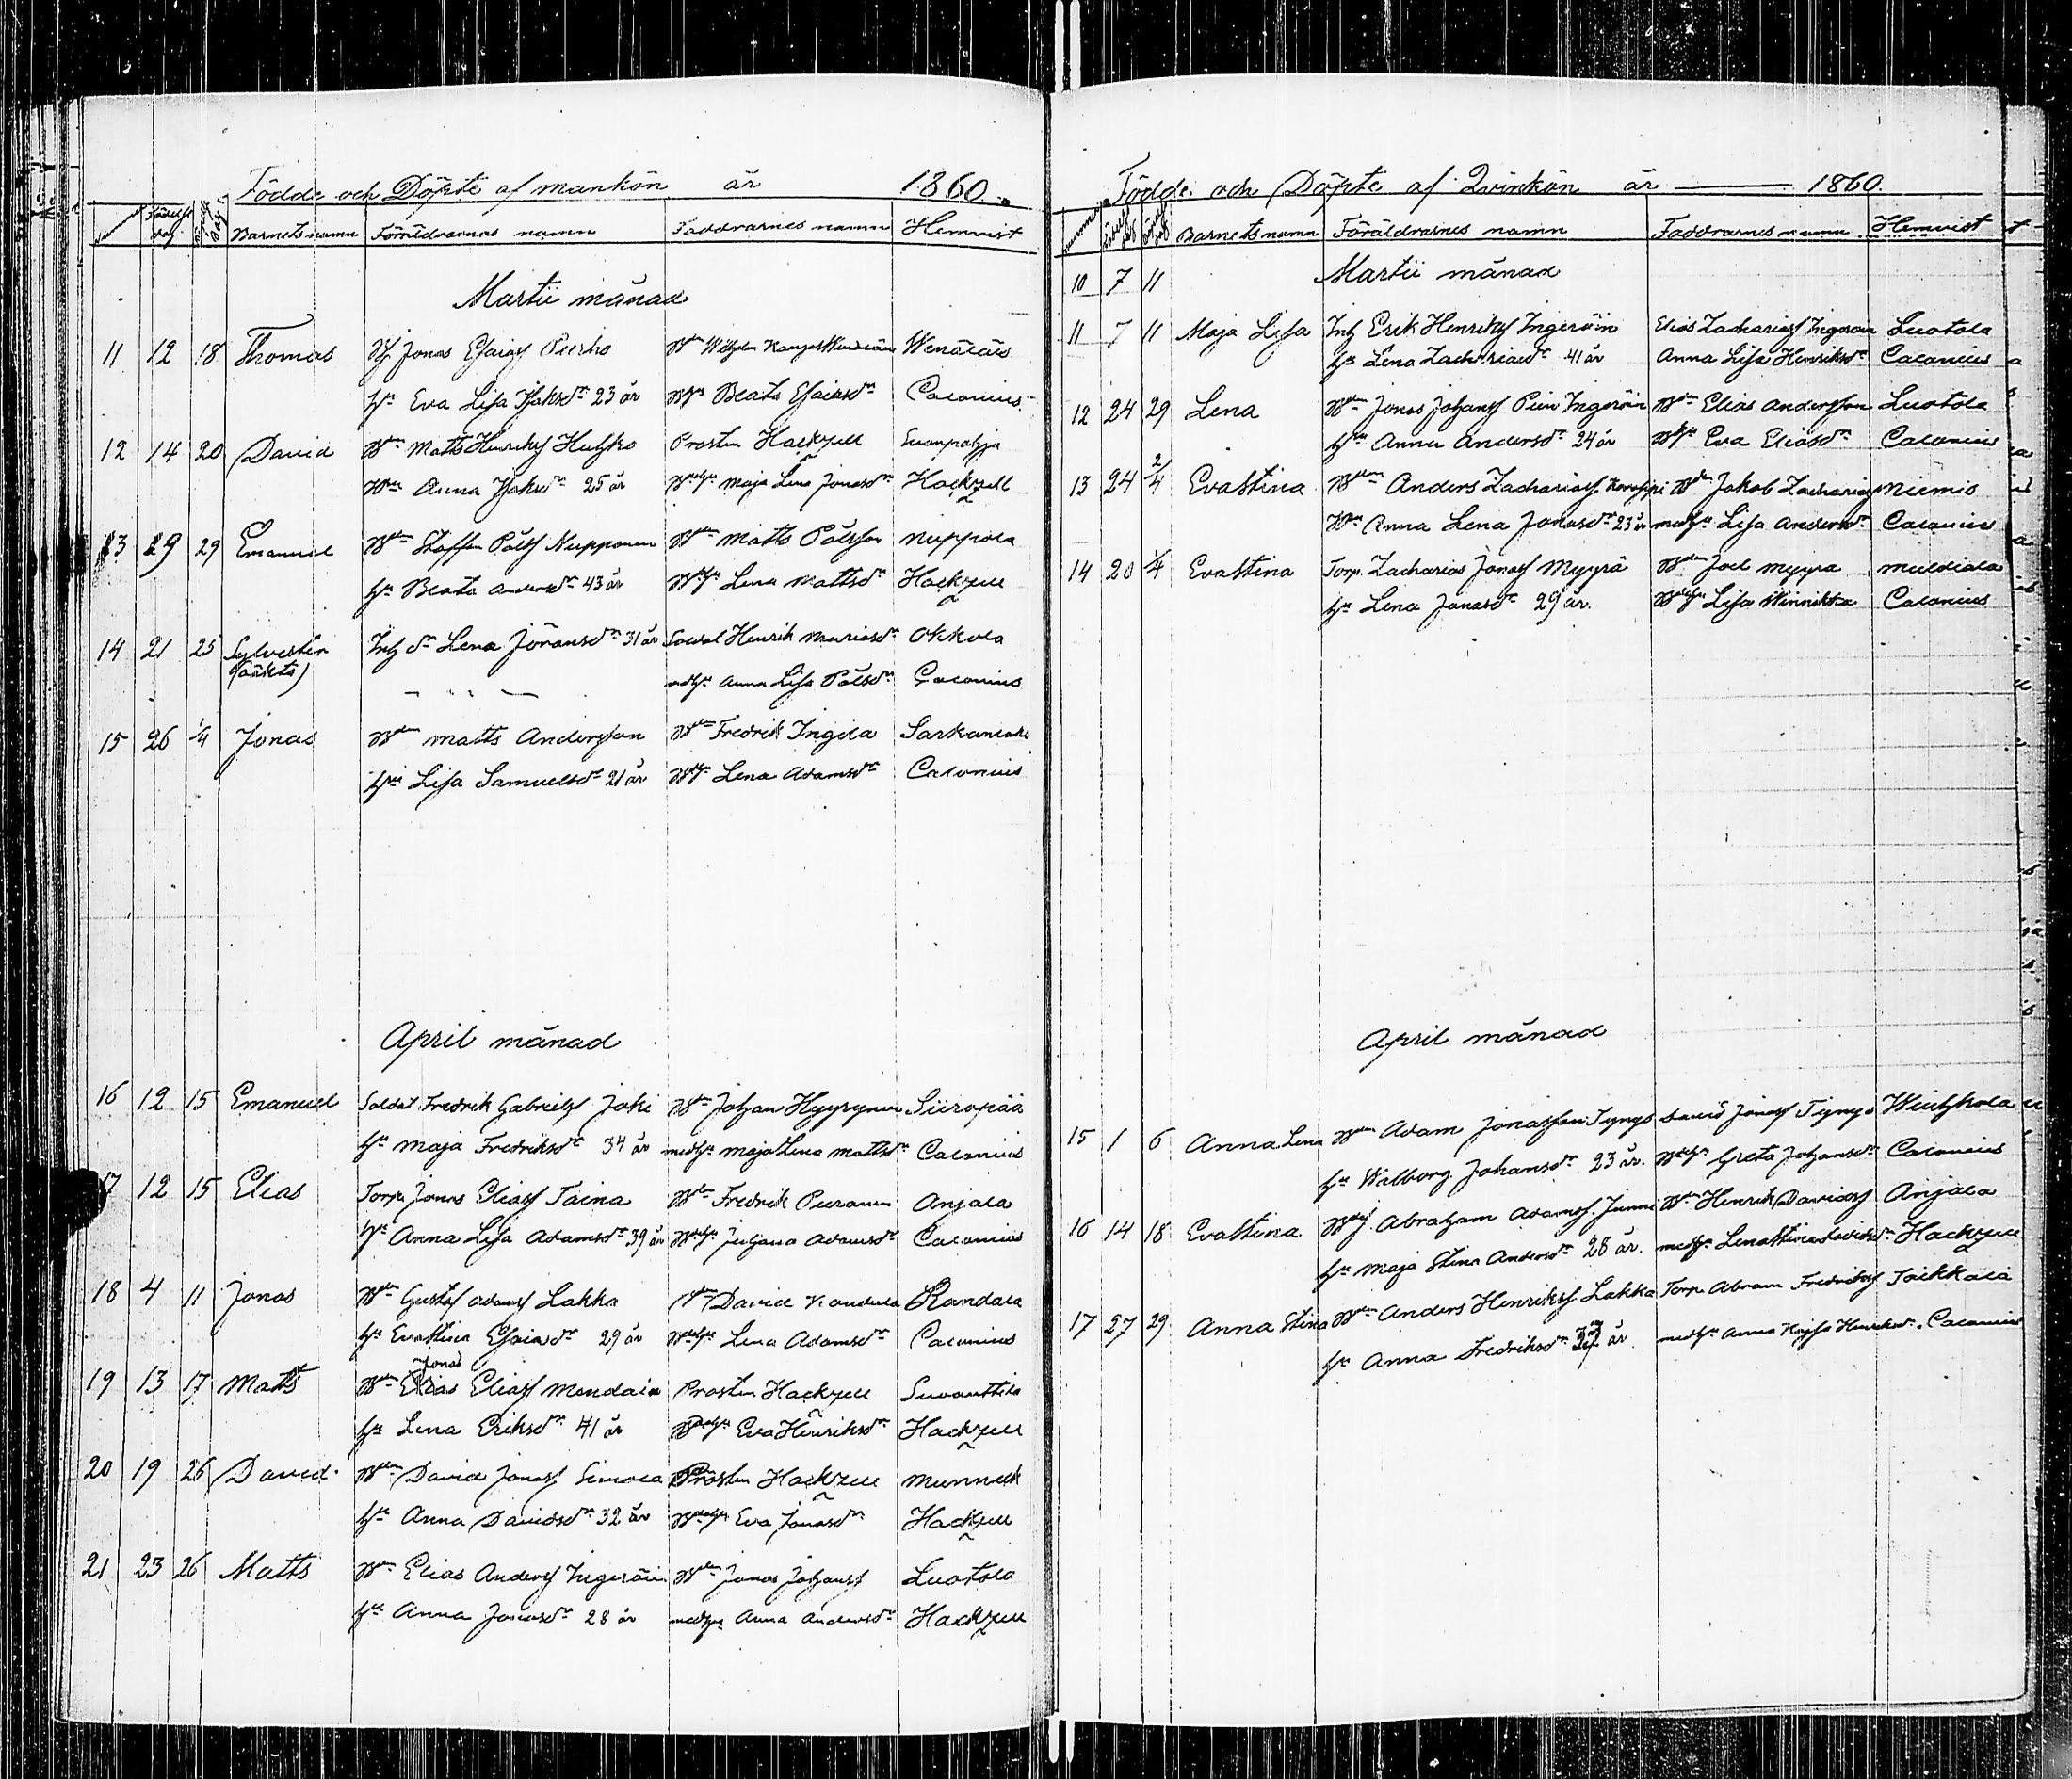 Födde och Döpte af mankön år 1860.
Födelse dag Barnets namn Föräldrarnes namn Faddrarnes namn Hemvist
Martii månad
11 12 18 Thomas Jonas Esaiass Purho Wilhelm Wenäläis
Hu Eva Lisa 23 år Beata Esaiasdr Calonius
12 14 20 David Bdn Matts Henrikss Huhko Prosten Hackzell Suonpohja
Anna 25 år Maja Lena Jonasdr Hackzell
13 19 29 Emanuel Bdn Staffan Pålss Nupponen Bdn Matts Pålsson Nuppola
Hu Beata Andersdr 43 år Lena Mattsdr Hackzell
14 21 25 Sylvester Inh dr Lena Jöransdr 31 år Soldat Henrik Okkola
(oäkta) Anna Lisa Pålsdr Calonius
15 26 1/4 Jonas Bdn Matts Andersson Bdn Fredrik Ingila
Hu Lisa Samuelsdr 21 år Lena Adamsdr Calonius
April månad
16 12 15 Emanuel Soldat Fredrik Gabrielss Joki Bdn Johan Hyyrynen Siiropää
Hu Maja Fredriksdr 34 år Maja Lena Mattsdr Calonius
17 12 15 Elias Torp Jonas Eliass Taina Bdn Fredrik Anjala
Hu Anna Lisa Adamsdr 39 år Juliana Adamsdr Calonius
18 4 11 Jonas Bdn Gustaf Adamss Lakka David Kandola Kandala
Hu Evastina Esaiasdr 29 år Lena Adamsdr Calonius
Jonas
19 13 17 Matts Bdn Elias Eliass Prosten Hackzell Suoanttila
Hu Lena Eriksdr 41 år Eva Henriksdr Hackzell
20 19 26 David Bdn David Jonass Simola Prosten Hackzell
Hu Anna Davidsdr 32 år Eva Jonasdr Hackzell
21 23 26 Matts Bdn Elias Anderss Ingeröin Bdn Jonas Johanss Luotola
Hu Anna Jonasdr 28 år Anna Andersdr Hackzell
Födde och Döpte af Qvinkön år 1860.
Barnets namn Föräldrarnes namn Faddrarnes namn Hemvist
10 7 11 Martii månad
11 7 11 Maja Lisa Inh Erik Henrikss Ingeröin Elias Zachariass Ingeröin Luotola
Hu Lena Zachariasdr 41 år Anna Lisa Henriksdr Calonius
12 24 29 Lena Bdn Jonas Johanss Ingeröin Bdn Elias Andersson Luotola
Hu Anna Andersdr 24 år Eva Eliasdr Calonius
13 24 2/4 Evastina Bdn Anders Zachariass Bdn Jakob Zachariass Niemis
Anna Lena Jonasdr 23 år Lisa Andersdr Calonius
14 20 1/4 Evastina Torp. Zacharias Jonass Myyrä Bdn Joel Myyra Muldiala
Hu Lena Jonasdr 29 år. Lisa Winnikka Calonius
April månad
15 1 6 Anna Lena Bdn Adam Jonasson Tynys David Jonass Tynys
Hu Walborg Johansdr 23 år. Greta Johansdr Calonius
16 14 18 Evastina Abraham Adamss Junni Bdn Henrik Davidss Anjala
Hu Maja Stina Andersdr 28 år. Lenastina Davidsdr Hackzell
17 27 29 Anna Stina Bdn Anders Henrikss Lakka Torp. Abram Fredrikss Toikkala
Hu Anna Fredriksdr år Anna Kajsa Henriksdr. Calonius